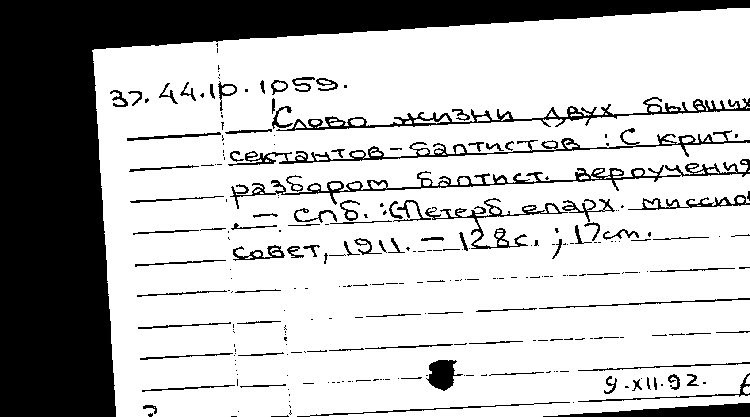 37.44.10.1059.
Слово жизни двух бывших
сектантов-баптистов : С крит.
разбором баптист. вероучения
. — СПб. : СПетерб. епарх. миссио
совет, 1911. — 128с. ; 17см.
9.XII.92.